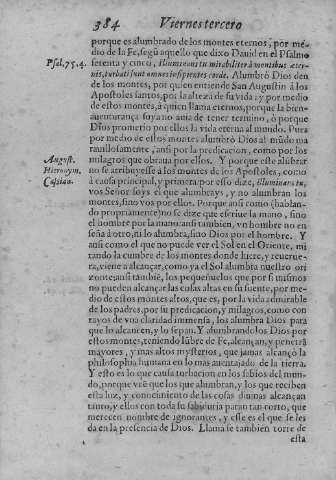 384 Viernes tercero
porque es alumbrado de los montes eternos, por mé
dio de la Fe, segũ aquello que dixo Dauid en el Psalmo
Psal.75.4. setenta y cinco, Illuminans tu mirabiliter à montibus æter-
nis, turbati sunt omnes insipientes corde. Alumbrò Dios den
de los montes, por quien entiende San Augustin à los
Apostoles santos, por la alteza de su vida: y por medio
de estos montes, à quien llama eternos, porque la bien-
auenturança suya no auia de tener termino, ò porque
Dios prometio por ellos la vida eterna al mundo. Pues
por medio de estos montes alumbrò Dios al mũdo ma
rauillosamente, ansi por la predicacion, como por los
August. milagros que obraua por ellos. Y porque este alũbrar
Hieronym. no se atribuyesse à los montes de los Apostoles, como
Cassian. à causa principal, y primera por esso dize, illuminans tu,
vos Señor soys el que alumbrays, y no alumbran los
montes, sino vos por ellos. Porque ansi como (hablan-
do propriamente) no se dize que escriue la mano, sino
el hombre por la mano: ansi tambien, vn hombre no en
seña à otro, ni lo alumbra, sino Dios por el hombre. Y
ansi como el que no puede ver el Sol en el Oriente, mi
rando la cumbre de los montes donde luze, y reuerue-
ra, viene à alcançar, como ya el Sol alumbra nuestro ori
zonte: ansi tambiẽ, los pequeñuelos que por si mismos
no pueden alcançar las cosas altas en su fuente, por me-
dio de estos montes altos, que es, por la vida admirable
de los padres, por su predicacion, y milagros, como con
rayos de vna claridad immensa, los alumbra Dios para
que lo alcancen, y lo sepan. Y alumbrandolos Dios por
estos montes, teniendo lũbre de Fe, alcançan, y penetrã
mayores, y mas altos mysterios, que jamas alcançò la
philosophia humana en lo mas auentajado de la tierra.
Y esto es lo que causa turbacion en los sabios del mun-
do, porque veẽ que los que alumbran, y los que reciben
esta luz, y conocimiento de las cosas diuinas alcançan
tanto, y ellos con toda su sabiduria paran tan corto, que
merecen nombre de ignorantes, y este es el que se les
da en la presencia de Dios. Llama se tambien torre de
esta